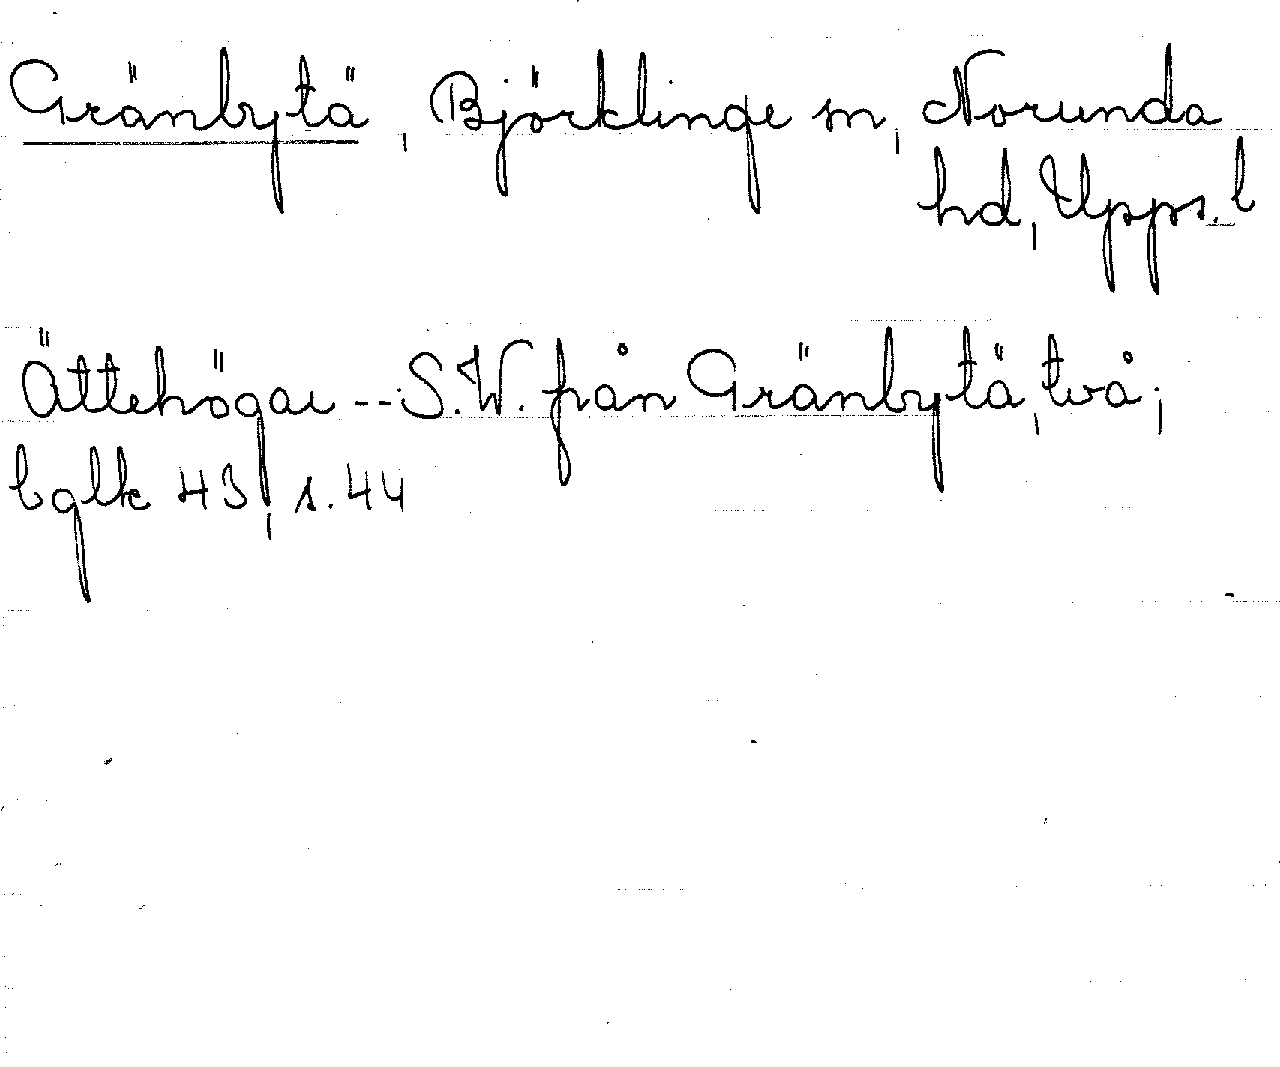 Gränbytä, Björklinge sn, Norunda
hd, Upps. l
Ättehögar --- S.W. från Gränbytä, två;
bglk 43, s. 44